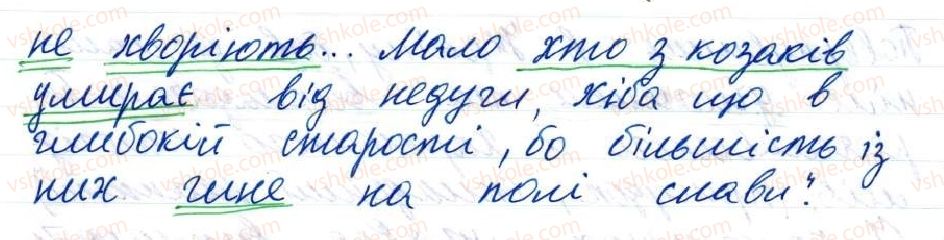 не хворіють... Мало хто з козаків
умирає від недуги, хіба що в
глибокій старості, бо більшість із
них гине на полі слави".